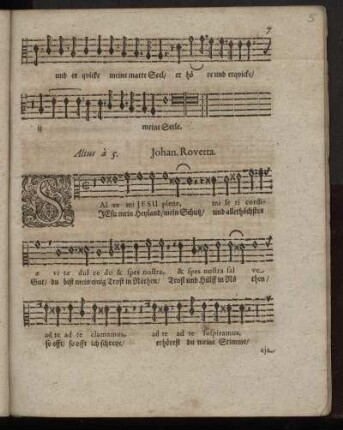 7
5
und er qvicke meine matte Seel/ er hö re und erqvicke/
ij meine Seele.
Altus à 5. Johan. Rovetta.
SAl ve mi JESU pient, mi se ri cordi-
JEsu mein Heyland/ mein Schutz/ und allerhöchstes
æ vi tæ dul ce do & spes nostra, & spes nostra sal ve.
Gut/ du bist mein einig Trost in Nöthen/ Trost und Hülff in Nö then/
ad te ad te clamamus, ad te ad te suspiramus,
so offt/ so offt ich schreye/ erhörest du meine Stimme/
eja